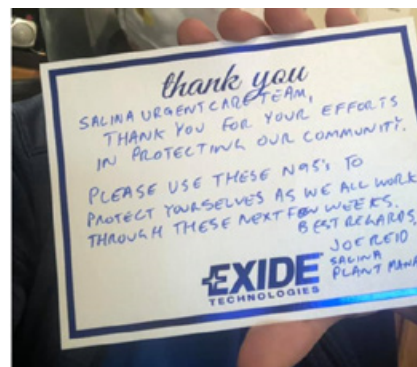 thank you
SALINA URGENT CARE TEAM,
THANK YOU FOR YOUR EFFORTS
IN PROTECTING OUR COMMUNITY.
PLEASE USE THESE N95'S TO
PROTECT YOURSELVES AS WE ALL WORK
THROUGH THESE NEXT FEW WEEKS.
BEST REGARDS,
JOE REID
SALINA
PLANT MANA
EXIDE
TECHNOLOGIES